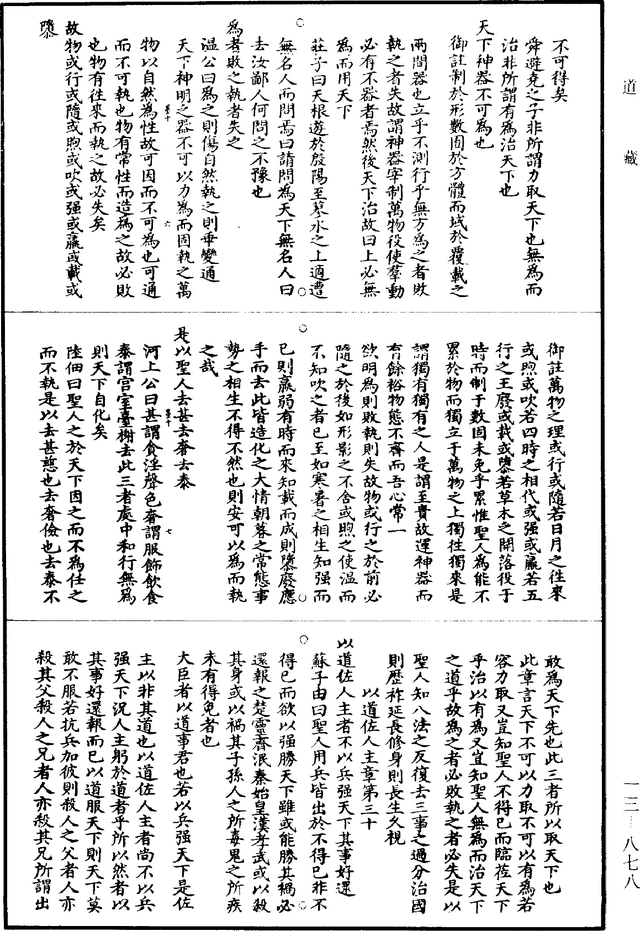 道藏
不可得矣
舜避堯之子非所謂力取天下也無為而
治非所謂有為治天下也
天下神器不可為也
御註制於形數囿於方體而域於覆載之
兩間器也立乎不測行乎無方為之者敗
執之者失故謂神器宰制萬物役使羣動
必有不器者焉然後天下治故曰上必無
為而用天下
莊子曰天根遊於殷陽至蓼水之上適遭
無名人而問焉曰請問為天下無名人曰
去汝鄙人何問之不豫也
為者敗之執者失之
溫公曰為之則傷自然執之則乖變通
天下神明之器不可以力為而固執之萬
物以自然為性故可因而不可為也可通
而不可執也物有常性而造為之故必敗
也物有往來而執之故必失矣
故物或行或隨或煦或吹或强或羸或載或
隳
御註萬物之理或行或隨若日月之往來
或煦或吹若四時之相代或强或羸若五
行之王廢或載或隳若草木之開落役于
時而制于數固未免乎累惟聖人為能不
累於物而獨立于萬物之上獨往獨來是
謂獨有獨有之人是謂至貴故運神器而
有餘裕物態不齊而吾心常一
欲明為則敗執則失故物或行之於前必
隨之於後如形影之不舍或煦之使溫而
不知吹之者已至如寒暑之相生知强而
已則羸弱有時而來知載而成則隳廢應
手而去此皆造化之大情朝暮之常態事
勢之相生不得不然也則安可以為而執
之哉
是以聖人去甚去奢去泰
河上公曰甚謂貪淫聲色奢謂服飾飲食
泰謂宮室臺榭去此三者處中和行無為
則天下自化矣
陸佃曰聖人之於天下因之而不為任之
而不執是以去甚慈也去奢儉也去泰不
敢為天下先也此三者所以取天下也
此章言天下不可以力取不可以有為若
容力取又豈知聖人不得已而臨蒞天下
乎治以有為又豈知聖人無為而治天下
之道乎故為之者必敗執之者必失是以
聖人知八法之反復去三事之過分治國
則歷祚延長修身則長生久視
以道佐人主章第三十
以道佐人主者不以兵强天下其事好還
蘇子由曰聖人用兵皆出於不得已非不
得已而欲以强勝天下雖或能勝其禍必
還報之楚靈齊湣秦始皇漢孝武或以殺
其身或以禍其子孫人之所毒鬼之所疾
未有得免者也
大臣者以道事君也若以兵强天下是佐
主以非其道也以道佐人主者尚不以兵
强天下況人主躬於道者乎所以然者以
其事好還報而已以道服天下則天下莫
敢不服若抗兵加彼則殺人之父者人亦
殺其父殺人之兄者人亦殺其兄所謂出
一三—八七八